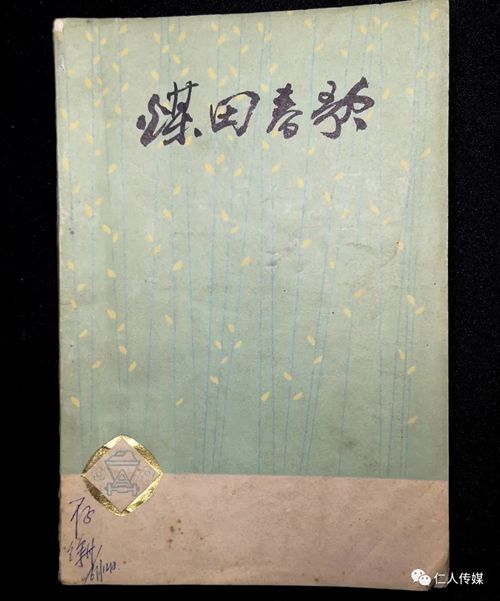 煤田春歌
仁人传媒